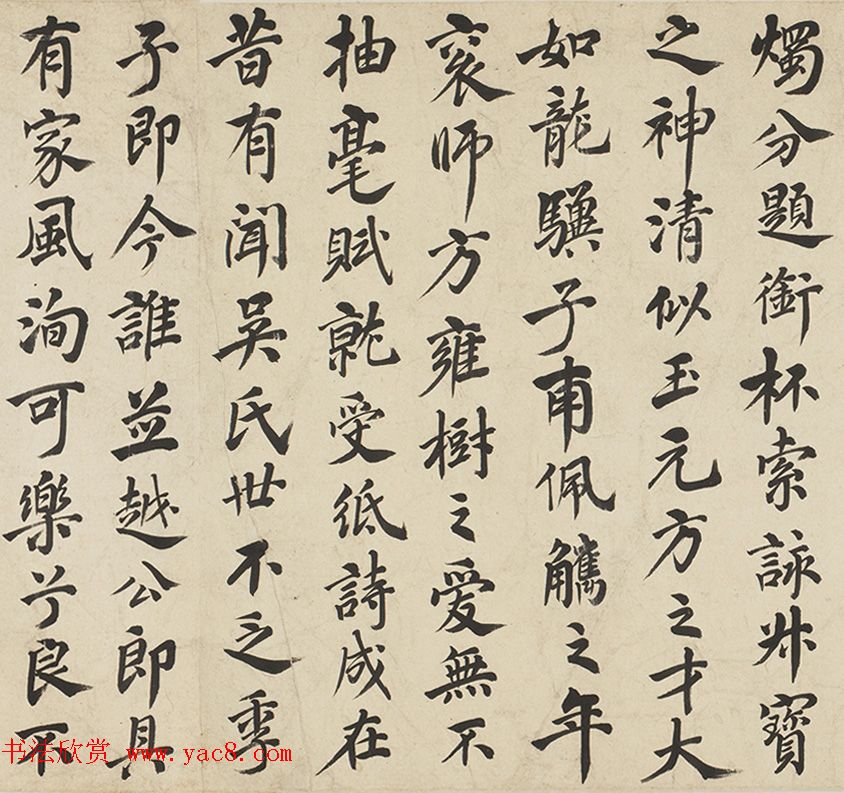 燭分題銜杯索詠叔寶
之神清似玉元方之才大
如龍驥子甫佩觿之年
袞師方雍樹之愛無不
抽毫賦就受紙詩成在
昔有聞吳氏世不乏季
子即今誰並越公即具
有家風洵可樂兮良不
书法欣赏 www.yac8.com